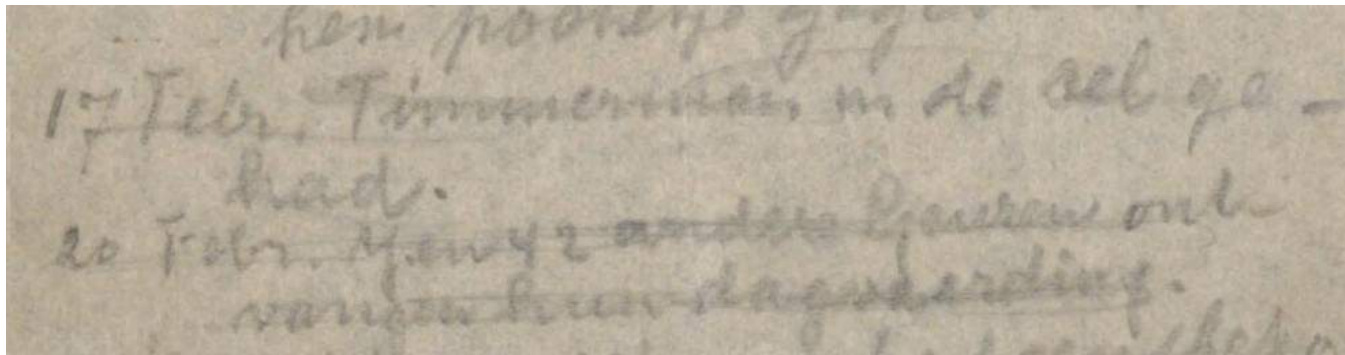 hem
17 Febr. Timmerman in de cel ge-
had.
20 Febr. en 42 andere ont-
vangen hun dagvaarding.